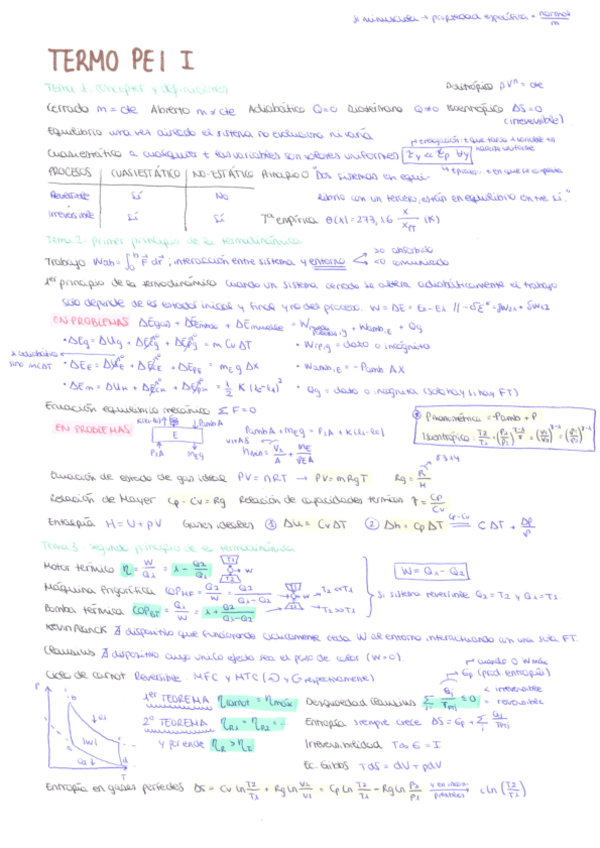 si minúscula → propiedad específica = normal/m
TERMO PEI I
Tema 1. conceptos y definiciones
Politrópico pVⁿ = cte
Cerrado m = cte Abierto m ≠ cte Adiabático Q=0 Diatérmano Q≠0 Isoentrópico ΔS=0
(reversible)
Equilibrio una vez aislado el sistema no evoluciona ni varía
Cuasiestático a cualquier t las variables son valores uniformes
PROCESOS CUASIESTÁTICO NO-ESTÁTICO Principio 0 "Dos sistemas en equi-
Reversible Sí No librio con un tercero, están en equilibrio entre sí."
Irreversible Sí Sí Tª empírica θ(x) = 273,16 x/xPT (K)
Tema 2. primer principio de la termodinámica
Trabajo Wab = ∫ F dr ; interacción entre sistema y entorno >0 absorbido
<0 comunicado
1er principio de la termodinámica cuando un sistema cerrado se altera adiabáticamente el trabajo
solo depende de los estados inicial y final y no del proceso. W = ΔE = E2 - E1
EN PROBLEMAS ΔEgas + ΔEémbolo + ΔEmuelle = + Wamb,E + Qg
• ΔEg = ΔUg + ΔEcg + ΔEpg = m Cv ΔT • = dato o incógnita
• ΔEE = ΔUE + ΔEcE + ΔEpE = mE g Δx • Wamb,E = -Pamb A X
• ΔEm = ΔUm + ΔEcm + ΔEpm = 1/2 K • Qg = dato o incógnita (solo hay si hay FT)
Ecuación equilibrio mecánico ΣF=0
Pmanométrica = -Pamb + P
EN PROBLEMAS
E
P1A
mEg
Ecuación de estado de gas ideal PV = nRT → PV = mRgT Rg = R/M
8'314
Relación de Mayer Cp - Cv = Rg Relación de capacidades térmicas γ = Cp/Cv
Entalpía H = U + pV Gases ideales ① Δu = Cv ΔT ② Δh = Cp ΔT
Tema 3. segundo principio de la termodinámica
Motor térmico η = W/Q1 = 1 - Q2/Q1
W = Q1 - Q2
Máquina frigorífica COPMF = Q2/W = Q2/(Q1-Q2)
Si sistema reversible Q2 = T2 y Q1 = T1.
Bomba térmica COPBT = Q1/W = 1 + Q2/(Q1-Q2)
Kelvin Planck ∄ dispositivo que funcionando cíclicamente ceda W al entorno interactuando con una sola FT.
Clausius ∄ dispositivo cuyo único efecto sea el paso de calor (W=0).
Ciclo de Carnot Reversible. MFC y MTC
σp (prod. entropía)
1er TEOREMA ηcarnot = ηmáx Desigualdad Clausius ≤ 0
< irreversible
= reversible
2º TEOREMA ηR1 = ηR2 = ... Entropía siempre crece
y por ende ηR > ηI Irreversibilidad = I
Ec. Gibbs TdS = dU + pdV
Entropía en gases perfectos Δs = Cv Ln T2/T1 + Rg Ln V2/V1 = Cp Ln T2/T1 - Rg Ln P2/P1 c Ln (T2/T1)